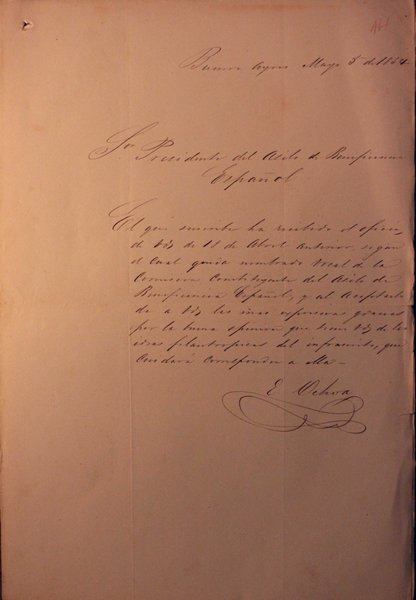 Buenos Ayres Mayo 5 de 1854
Sor Presidente del Asilo de Beneficencia
Español
El que suscribe ha recibido el oficio
de Vd. de 18 de Abril anterior, segun
el cual queda nombrado vocal de la
Comision del Asilo de
Beneficencia Español, y al
de a Vd. las mas expresivas gracias
por la buena opinion que tiene Vd. de las
ideas filantropicas del infrascrito, que
corresponder a
E Ochoa